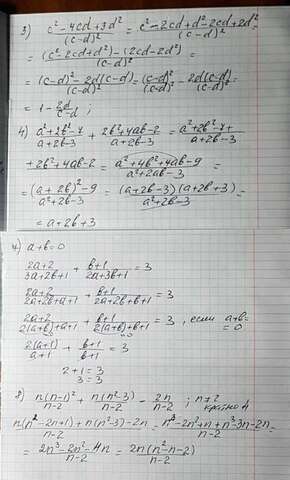 3) c²-4cd+3d² / (c-d)² = c²-2cd+d²-2cd+2d² / (c-d)² =
= (c²-2cd+d²)-(2cd-2d²) / (c-d)² =
= (c-d)²-2d(c-d) / (c-d)² = (c-d)² / (c-d)² - 2d(c-d) / (c-d)² =
= 1 - 2d / c-d ;
4) a²+2b²-7 / a+2b-3 + 2b²+4ab-2 / a+2b-3 = a²+2b²-7+
+2b²+4ab-2 / = a²+4b²+4ab-9 / a²+2ab-3 =
= (a+2b)²-9 / a²+2b-3 = (a+2b-3)(a+2b+3) / a²+2b-3 =
= a+2b+3
4) a+b=0
2a+2 / 3a+2b+1 + b+1 / 2a+3b+1 = 3
2a+2 / 2a+2b+a+1 + b+1 / 2a+2b+b+1 = 3
2a+2 / 2(a+b)+a+1 + b+1 / 2(a+b)+b+1 = 3 , если a+b=
=0
2(a+1) / a+1 + b+1 / b+1 = 3
2+1=3
3=3
8) n(n-1)² / n-2 + n(n²-3) / n-2 - 2n / n-2 ; n≠2
n(n²-2n+1)+n(n²-3)-2n / n-2 = n³-2n²+n+n³-3n-2n / n-2 =
= 2n³-2n²-4n / n-2 = 2n(n²-n-2) / n-2